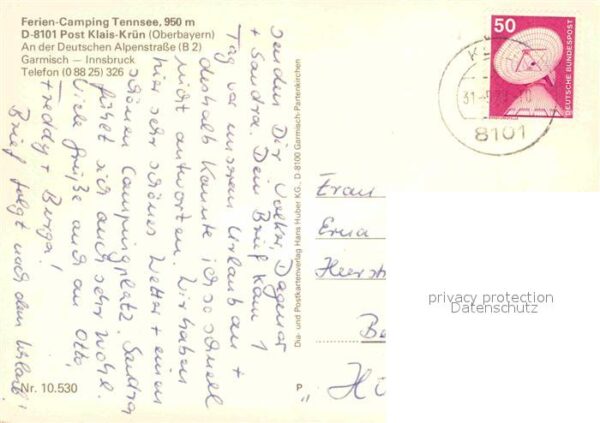 Ferien-Camping Tennsee, 950 m
D-8101 Post Klais-Krün (Oberbayern)
An der Deutschen Alpenstraße (B 2)
Garmisch — Innsbruck
Telefon (0 88 25) 326
senden Dir Volker, Dagmar
+ Sandra. Dein Brief kam 1
Tag vor unserem Urlaub an +
deshalb konnte ich so schnell
nicht antworten. Wir haben
hier sehr schönes Wetter + einen
schönen Campingplatz. Sandra
fühlt sich auch sehr wohl.
Viele Grüße auch an Otto,
Freddy + Birga!
Brief folgt nach dem Urlaub!
Nr. 10.530
Dia- und Postkartenverlag Hans Huber KG., D-8100 Garmisch-Partenkirchen
P
50
DEUTSCHE BUNDESPOST
8101
Frau
Erna
privacy protection
Datenschutz